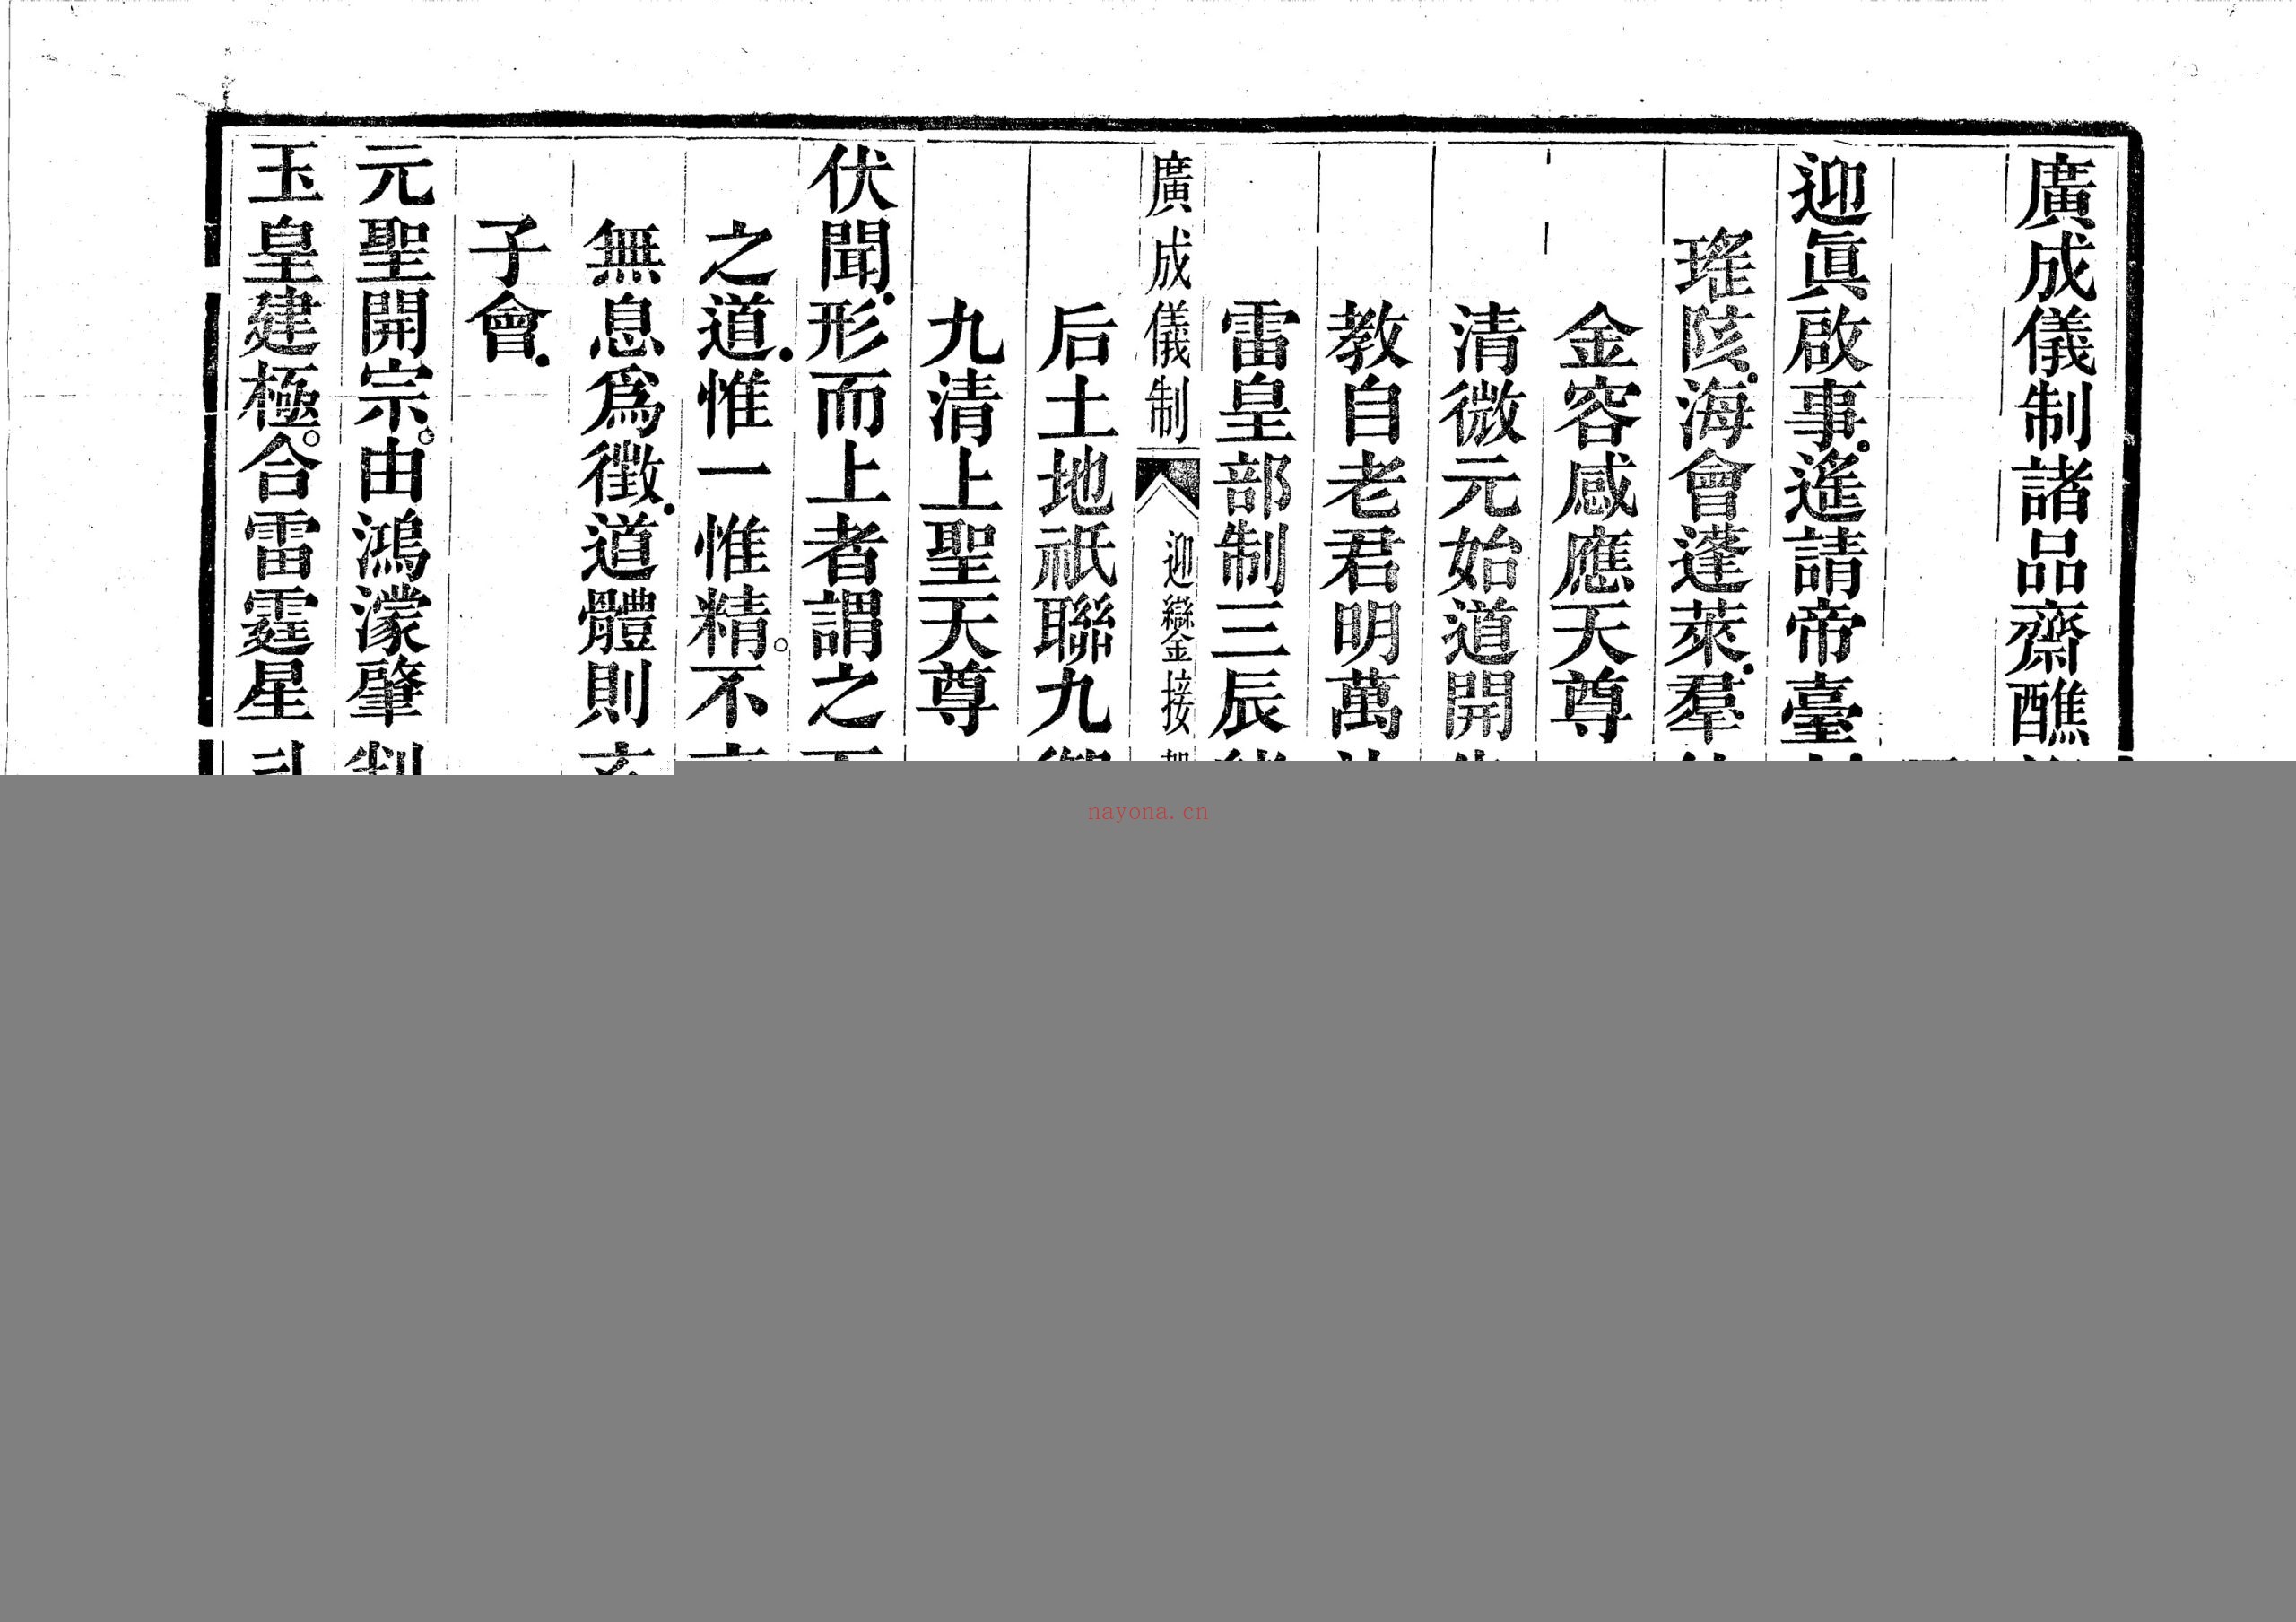 廣成儀制諸品齋醮
迎眞啟事遙請帝臺
瑤陔海會蓬萊羣
金容感應天尊
清微元始道開
教自老君明萬
雷皇部制三辰
廣成儀制 迎鑾接
后土地祇聯九
九清上聖天尊
伏聞形而上者謂之
之道惟一惟精。不
無息爲徵道體則玄
子會
元聖開宗。由鴻濛肇判
玉皇建極。合雷霆星斗
nayona.cn